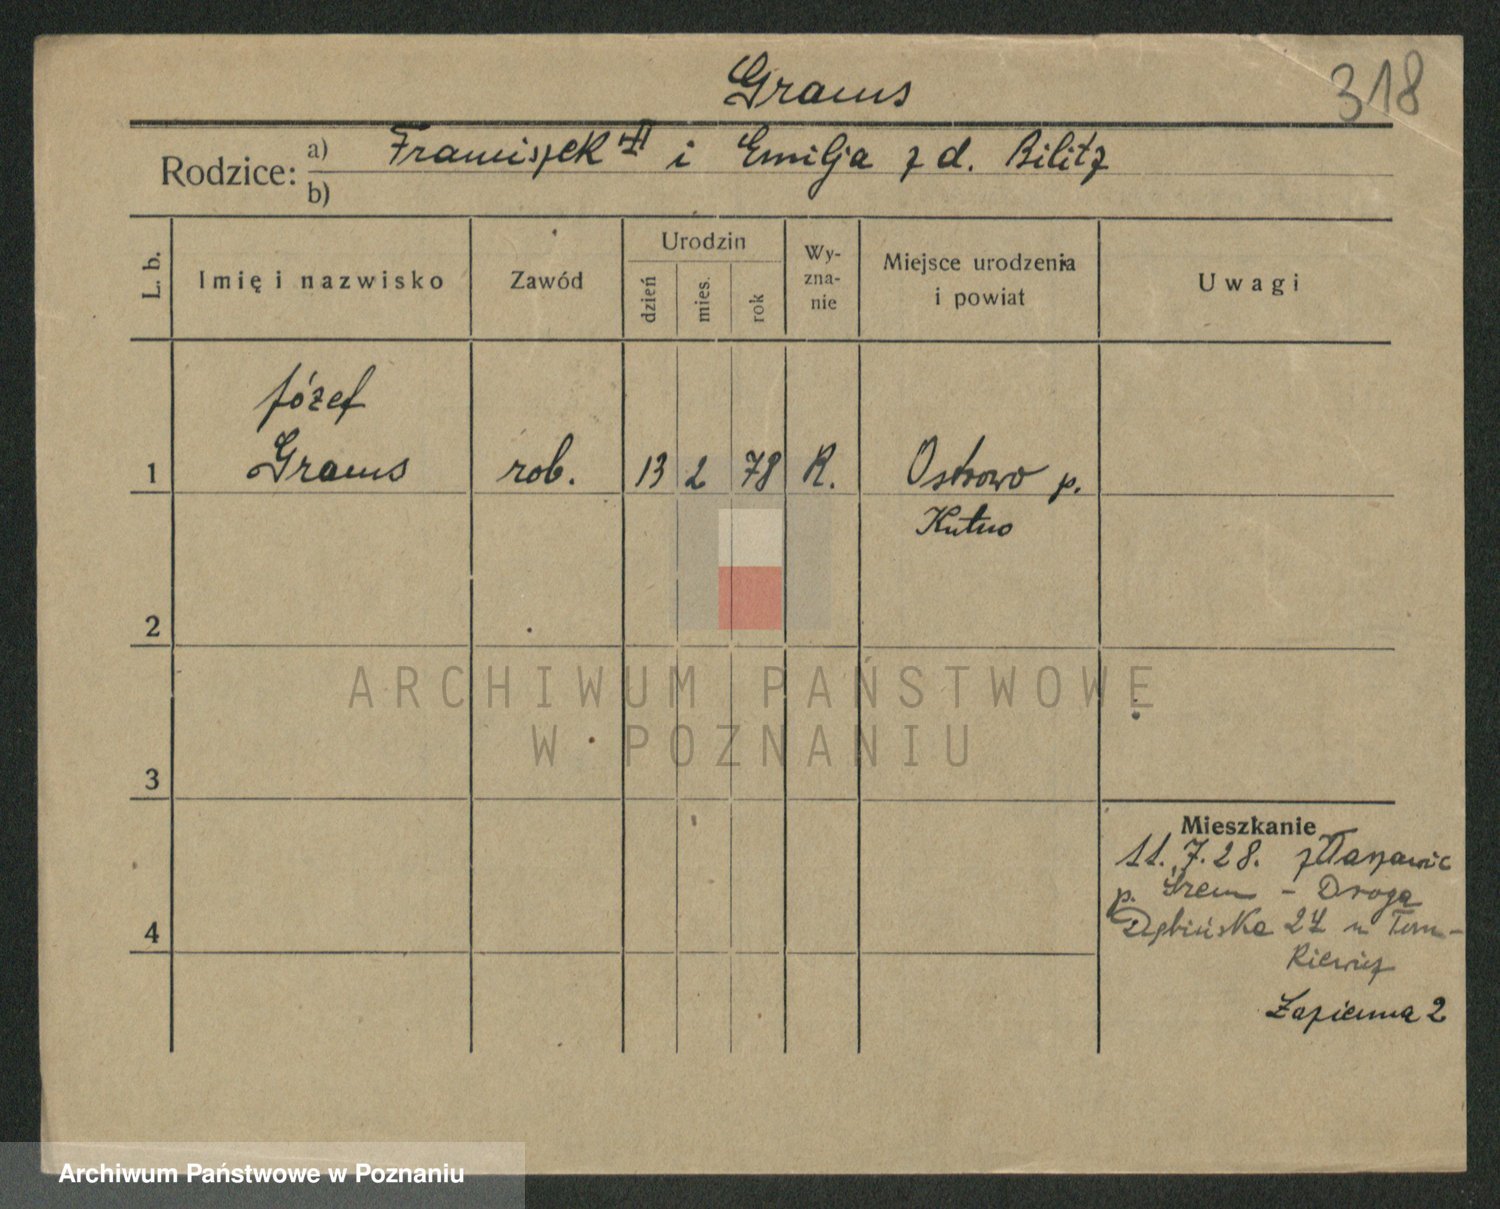 Grams
318
Rodzice: a) Franciszek i Emilja z d. Bilitz
b)
L. b.
Imię i nazwisko
Zawód
Urodzin
dzień
mies.
rok
Wy-
zna-
nie
Miejsce urodzenia
i powiat
Uwagi
Józef
1 Grams rob. 13 2 78 R. Ostrowo p.
Kutno
2
ARCHIWUM PAŃSTWOWE
W POZNANIU
3
Mieszkanie
11.7.28. z
p. Śrem - Droga
4 Dębińska 27 u Tom-
kiewicz
Łazienna 2
Archiwum Państwowe w Poznaniu